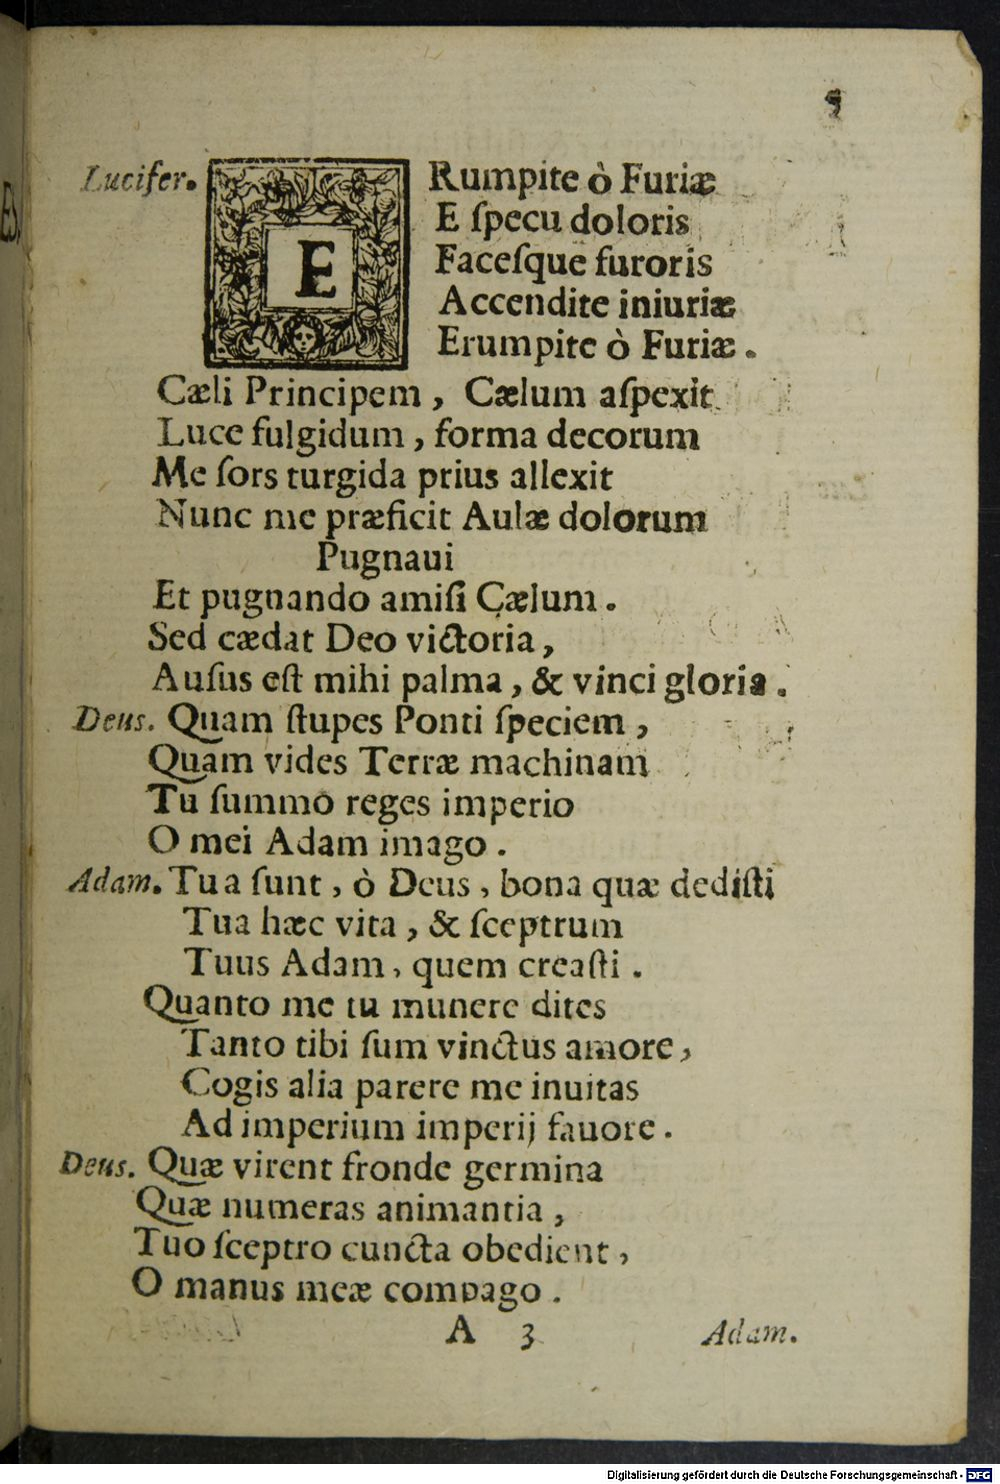 5
Lucifer. ERumpite ò Furiæ
E ſpecu doloris
Faceſque furoris
Accendite iniuriæ
Erumpite ò Furiæ.
Cæli Principem, Cælum aſpexit
Luce fulgidum, forma decorum
Me ſors turgida prius allexit
Nunc me præficit Aulæ dolorum
Pugnaui
Et pugnando amiſi Cælum.
Sed cædat Deo victoria,
Auſus eſt mihi palma, & vinci gloria.
Deus. Quam ſtupes Ponti ſpeciem,
Quam vides Terræ machinam
Tu ſummo reges imperio
O mei Adam imago.
Adam. Tua ſunt, ò Deus, bona quæ dediſti
Tua hæc vita, & ſceptrum
Tuus Adam, quem creaſti.
Quanto me tu munere dites
Tanto tibi ſum vinctus amore,
Cogis alia parere me inuitas
Ad imperium imperij fauore.
Deus. Quæ virent fronde germina
Quæ numeras animantia,
Tuo ſceptro cuncta obedient,
O manus meæ compago.
A 3 Adam.
Digitalisierung gefördert durch die Deutsche Forschungsgemeinschaft - DFG